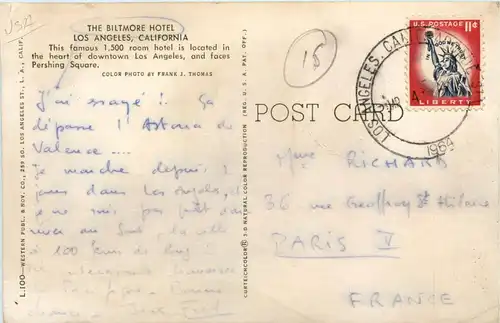 USA
THE BILTMORE HOTEL
LOS ANGELES, CALIFORNIA
This famous 1,500 room hotel is located in
the heart of downtown Los Angeles, and faces
Pershing Square.
COLOR PHOTO BY FRANK J. THOMAS
J'ai essayé! Ça
dépasse l'Astoria de
Valence....
je marche depuis
jours dans Los Angeles, et
je ne suis pas
au Sud, la ville
à 100 kms de long
L.100—WESTERN PUBL. & NOV. CO., 259 SO. LOS ANGELES ST., L. A., CALIF.
CURTEICHCOLOR® 3-D NATURAL COLOR REPRODUCTION (REG. U. S. A. PAT. OFF.)
15
POST CARD
U.S. POSTAGE 11¢
IN GOD WE TRUST
LIBERTY
LOS ANGELES, CAL
1964
Mme RICHARD
36 rue Geoffroy St Hilaire
PARIS V
FRANCE